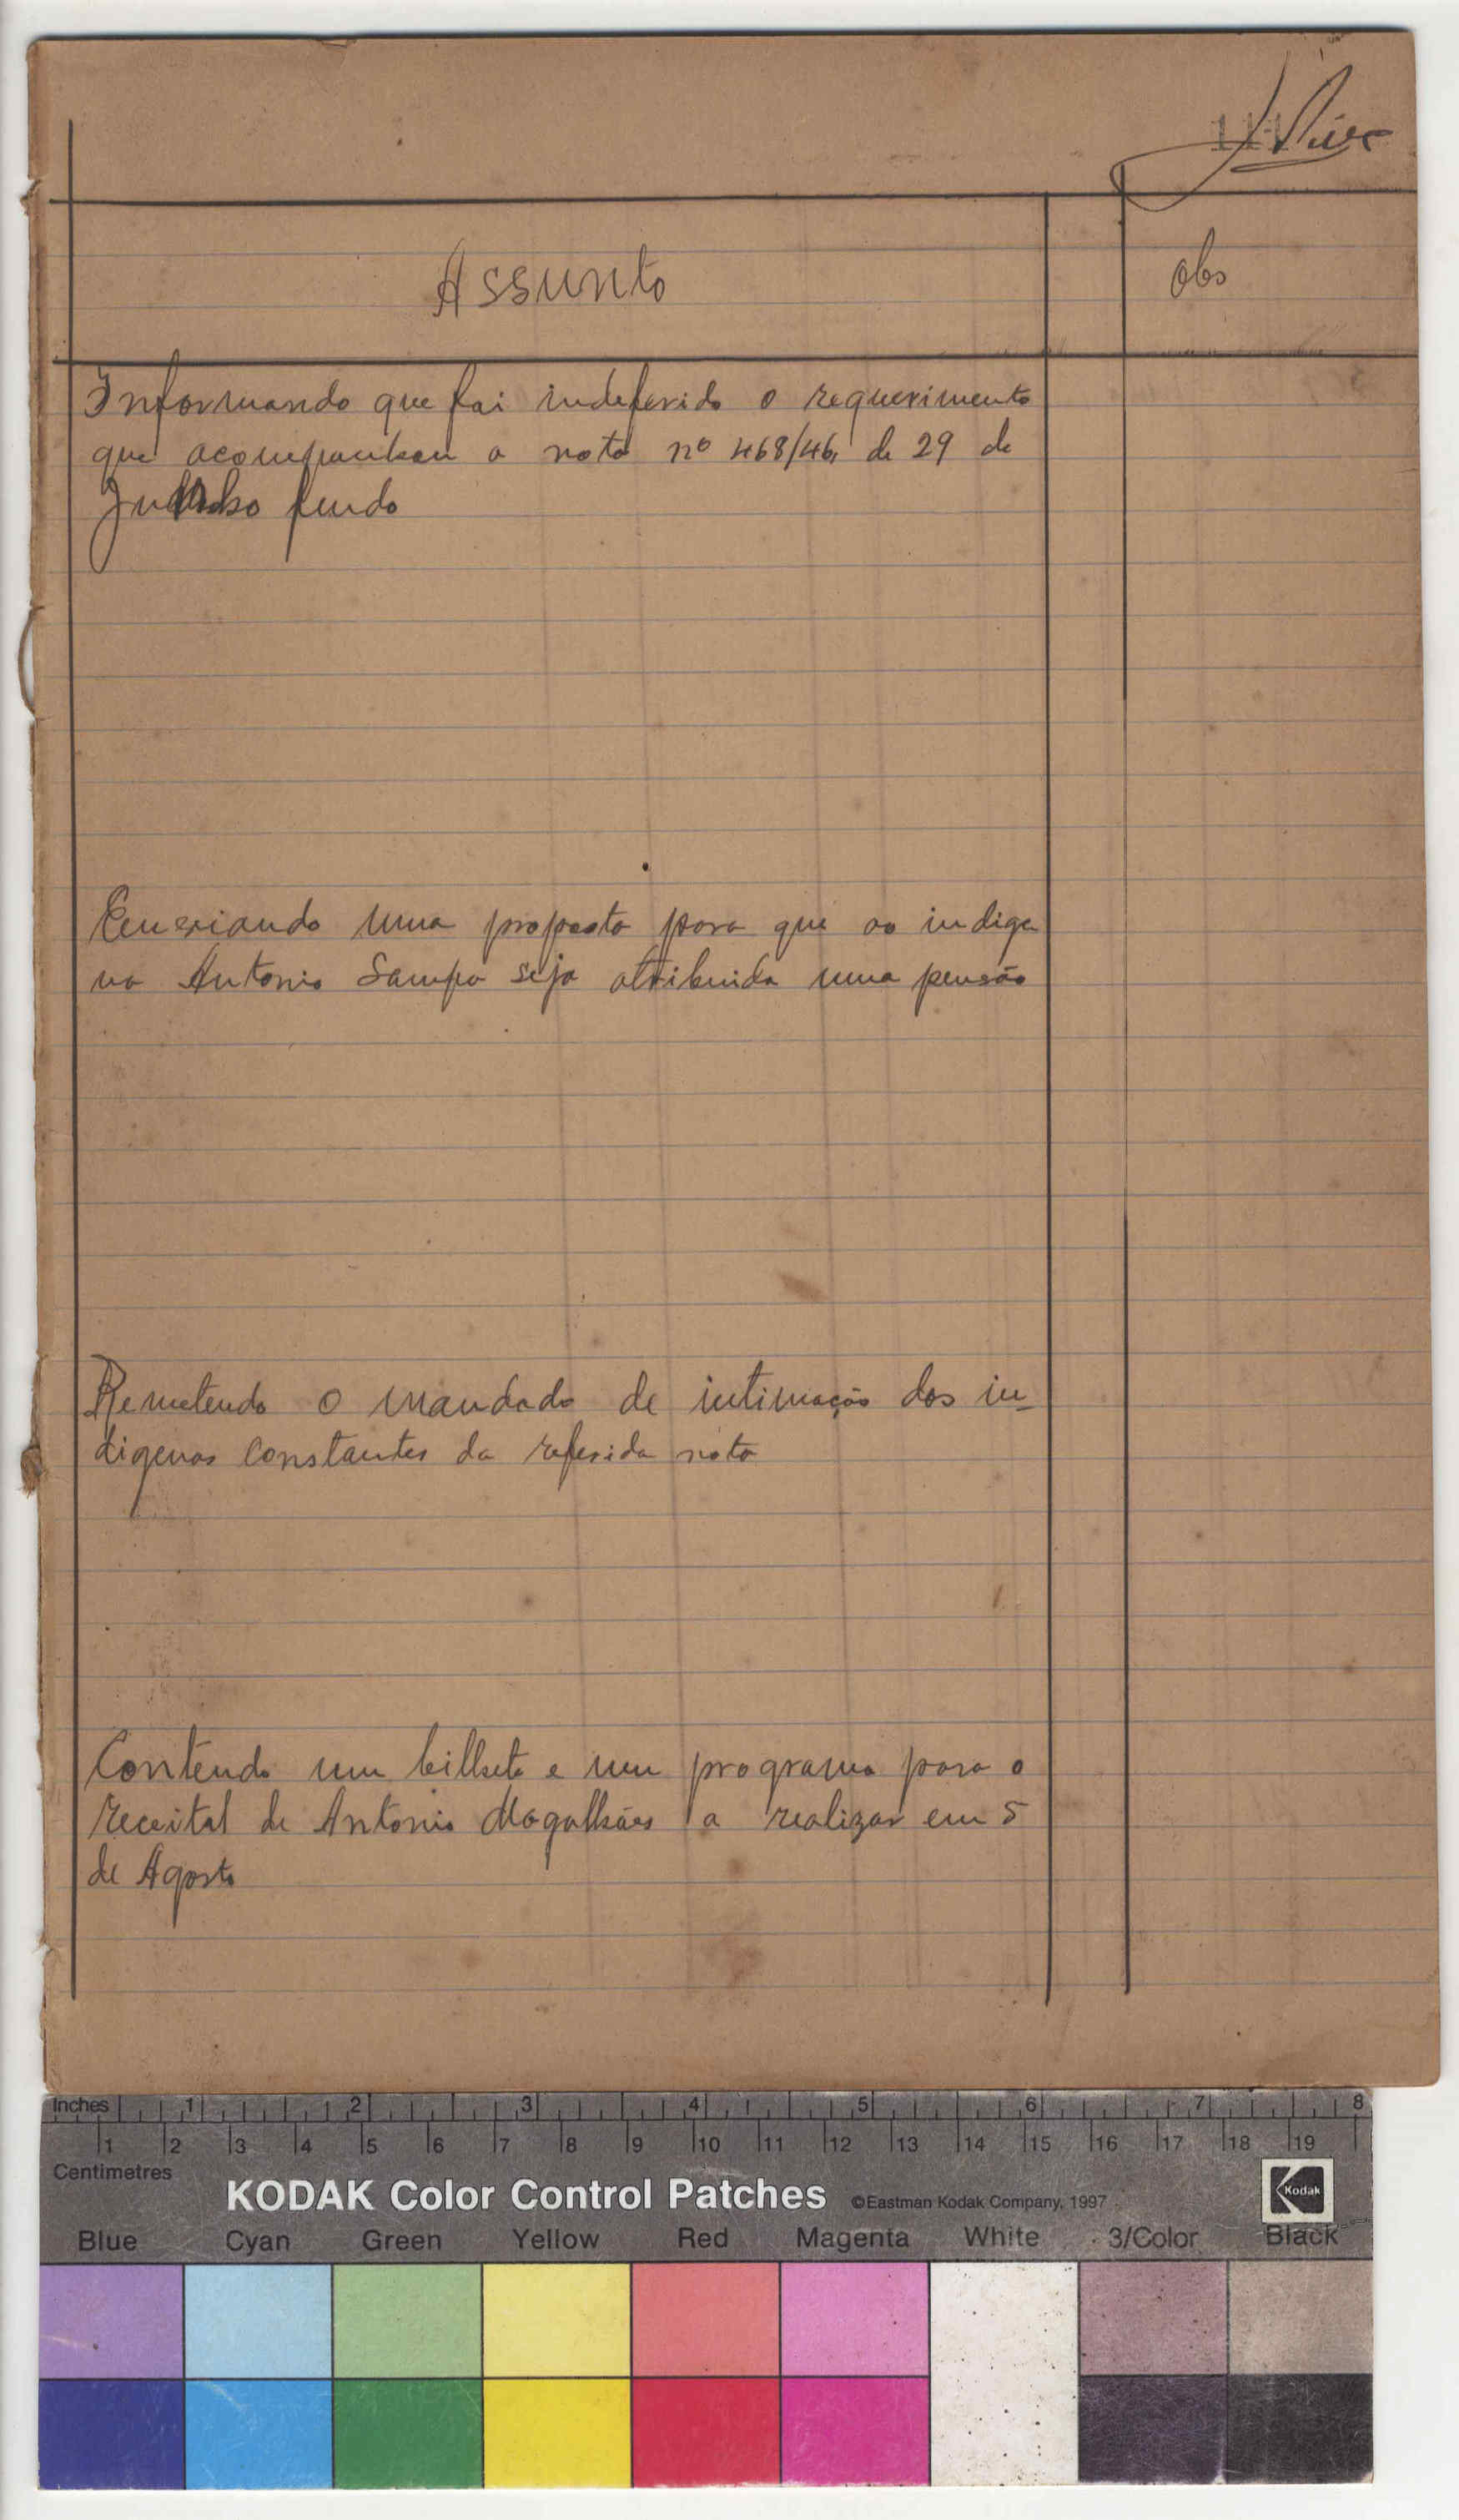 Assunto
Obs
Informando que foi indeferido o requerimento
que acompanhou a nota nº 468/46, de 29 de
findo
Enviando uma proposta para que ao indige
na Antonio Sampa seja atribuida uma pensão
Remetendo o mandado de intimação dos in_
digenas constantes da referida nota
Contendo um bilhete e um programa para o
recital de Antonio Magalhães a realizar em 5
de Agosto
Inches 1 2 3 4 5 6 7 8
1 2 3 4 5 6 7 8 9 10 11 12 13 14 15 16 17 18 19
Centimetres
KODAK Color Control Patches ©Eastman Kodak Company, 1997 Kodak
Blue Cyan Green Yellow Red Magenta White 3/Color Black